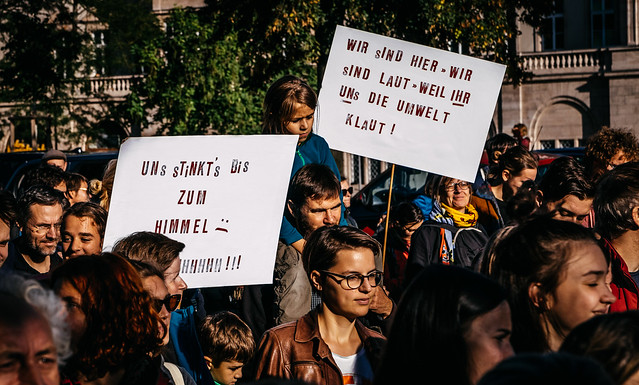 UNS STINKT'S BIS
ZUM
HIMMEL :(
HHHHH !!!
WIR SIND HIER » WIR
SIND LAUT » WEIL IHR
UNS DIE UMWELT
KLAUT !